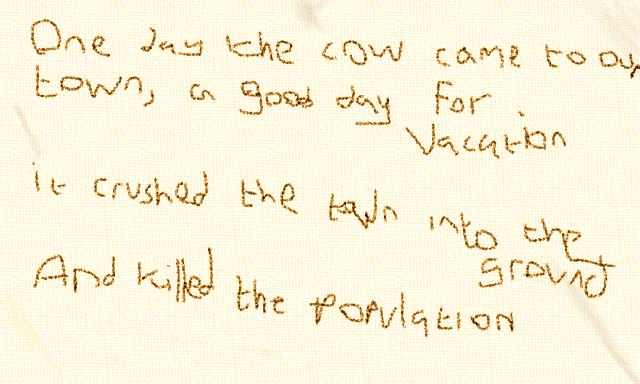 One day the cow came to our
town, a good day for
vacation
it crushed the town into the
ground
And killed the population